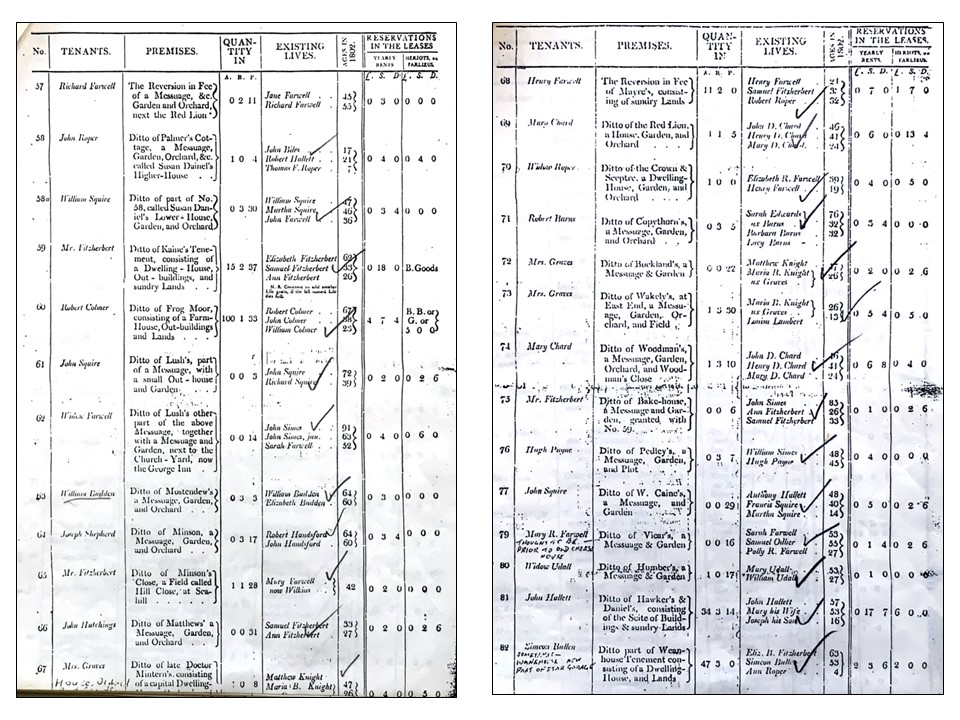 No. TENANTS. PREMISES. QUANTITY IN EXISTING LIVES. AGES IN 1802. RESERVATIONS IN THE LEASES.
YEARLY RENTS. HERIOTS, or FARLIEUS.
A. R. P. L. S. D. L. S. D.
57 Richard Farwell The Reversion in Fee
of a Messuage, &c. Jane Farwell 45
Garden and Orchard, 0 2 11 Richard Farwell 55 0 3 0 0 0 0
next the Red Lion
58 John Roper Ditto of Palmer's Cot-
tage, a Messuage, John Biles 17
Garden, Orchard, &c. 1 0 4 Robert Hallett 21 0 4 0 0 4 0
called Susan Dainel's Thomas F. Roper 7
Higher-House
58a William Squire Ditto of part of No. William Squire 47
58, called Susan Dan- 0 3 30 Martha Squire 46 0 3 4 0 0 0
iel's Lower-House, John Farwell 36
Garden, and Orchard
59 Mr. Fitzherbert Ditto of Kaine's Tene-
ment, consisting of Elizabeth Fitzherbert 62
a Dwelling-House, 15 2 37 Samuel Fitzherbert 33 0 18 0 B. Goods
Out-buildings, and Ann Fitzherbert 26
sundry Lands
60 Robert Colmer Ditto of Frog Moor, Robert Colmer 67 B. B. or
consisting of a Farm- 100 1 33 John Colmer 4 7 4 G. or
House, Out-buildings William Colmer 23 5 0 0
and Lands
61 John Squire Ditto of Lush's, part
of a Messuage, with 0 0 3 John Squire 72 0 2 0 0 2 6
a small Out-house Richard Squire 39
and Garden
62 Widow Farwell Ditto of Lush's other
part of the above John Simes 91
Messuage, together 0 0 14 John Simes, jun. 63 0 4 0 0 6 0
with a Messuage and Sarah Farwell 52
Garden, next to the
Church-Yard, now
the George Inn
63 William Budden Ditto of Mostendew's William Budden 64
a Messuage, Garden, 0 3 3 Elizabeth Budden 60 0 3 0 0 0 0
and Orchard
64 Joseph Shepherd Ditto of Minson, a Robert Handsford 64
Messuage, Garden, 0 3 17 John Handsford 60 0 3 4 0 0 0
and Orchard
65 Mr. Fitzherbert Ditto of Minson's
Close, a Field called 1 1 28 Mary Farwell 42 0 2 0 0 0 0
Hill Close, at Sea- now Wilkins
hill
66 John Hutchings Ditto of Matthews' a Samuel Fitzherbert 33
Messuage, Garden, 0 0 31 Ann Fitzherbert 27 0 2 0 0 2 6
and Orchard
67 Mrs. Graves Ditto of late Doctor
Mintern's, consisting Matthew Knight
of a capital Dwelling- 1 0 8 Maria B. Knight 47
No. TENANTS. PREMISES. QUANTITY IN EXISTING LIVES. AGES IN 1802. RESERVATIONS IN THE LEASES.
YEARLY RENTS. HERIOTS, or FARLIEUS.
A. R. P. L. S. D. L. S. D.
68 Henry Farwell The Reversion in Fee Henry Farwell 21
of Mayre's, consist- 11 2 0 Samuel Fitzherbert 0 7 0 1 7 0
ing of sundry Lands Robert Roper 32
69 Mary Chard Ditto of the Red Lion, John D. Chard 46
a House, Garden, and 1 1 5 Henry D. Chard 41 0 6 0 0 13 4
Orchard Mary D. Chard 24
70 Widow Roper Ditto of the Crown &
Sceptre, a Dwelling- 1 0 0 Elizabeth R. Farwell 39 0 4 0 0 5 0
House, Garden, and Henry Farwell 19
Orchard
71 Robert Barns Ditto of Copythorn's, Sarah Edwards 76
a Messuage, Garden, 0 3 5 ux Barns 32 0 3 4 0 0 0
and Orchard Barbara Barns 32
Lucy Barns
72 Mrs. Graves Ditto of Buckland's, a Matthew Knight
Messuage & Garden 0 0 22 Maria B. Knight 26 0 2 0 0 2 6
ux Graves
73 Mrs. Graves Ditto of Wakely's, at
East End, a Messu- Maria B. Knight 26
age, Garden, Or- 1 3 30 ux Graves 13 0 5 4 0 5 0
chard, and Field Louisa Lambert
74 Mary Chard Ditto of Woodman's,
a Messuage, Garden, 1 3 10 John D. Chard 46
Orchard, and Wood- Henry D. Chard 41 0 6 8 0 4 0
man's Close Mary D. Chard 24
75 Mr. Fitzherbert Ditto of Bake-house, John Simes 83
a Messuage and Gar- 0 0 6 Ann Fitzherbert 26 0 1 0 0 2 6
den, granted with Samuel Fitzherbert 33
No. 59.
76 Hugh Payne Ditto of Pedley's, a William Simes 48
Messuage, Garden, 0 3 7 Hugh Payne 45 0 4 0 0 0 0
and Plot
77 John Squire Ditto of W. Caine's, Anthony Hallett 48
a Messuage, and 0 0 29 Francis Squire 40 0 5 0 0 2 6
Garden Martha Squire 14
79 Mary R. Farwell Ditto of Vicar's, a Sarah Farwell 53
THOUGHT TO BE Messuage & Garden 0 0 16 Samuel Odber 55 0 1 4 0 2 6
PRIOR TO OLD CHEESE Polly R. Farwell 27
HOUSE
80 Widow Udall Ditto of Humber's, a Mary Udall 53
Messuage & Garden 1 0 17 William Udall 27 0 1 0 0 0 0
81 John Hallett Ditto of Hawker's & John Hallett 57
Daniel's, consisting 34 3 14 Mary his Wife 53 0 17 7 6 0 0
of the Scite of Build- Joseph his Son 16
ings & sundry Lands
82 Simeon Bullen Ditto part of Wean-
house Tenement con- Eliz. B. Fitzherbert 63
sisting of a Dwelling- 47 3 0 Simeon Bullen 53 2 3 6 2 0 0
PART OF STAR GARAGE House, and Lands Ann Roper 4